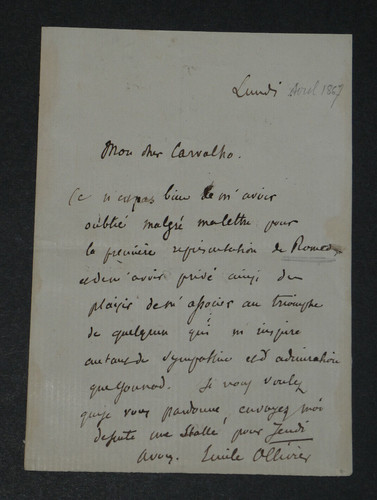 Lundi Avril 1867
Mon cher Carvalho.
Ce n'est pas bien de m'avoir
oublié malgré ma lettre pour
la première représentation de Romeo
et de m'avoir privé ainsi du
plaisir de m'associer au triomphe
de quelqu'un qui m'inspire
autant de sympathie et d'admiration
que Gounod. Si vous voulez
que je vous pardonne, envoyez moi
une Stalle, pour Jeudi
Emile Ollivier